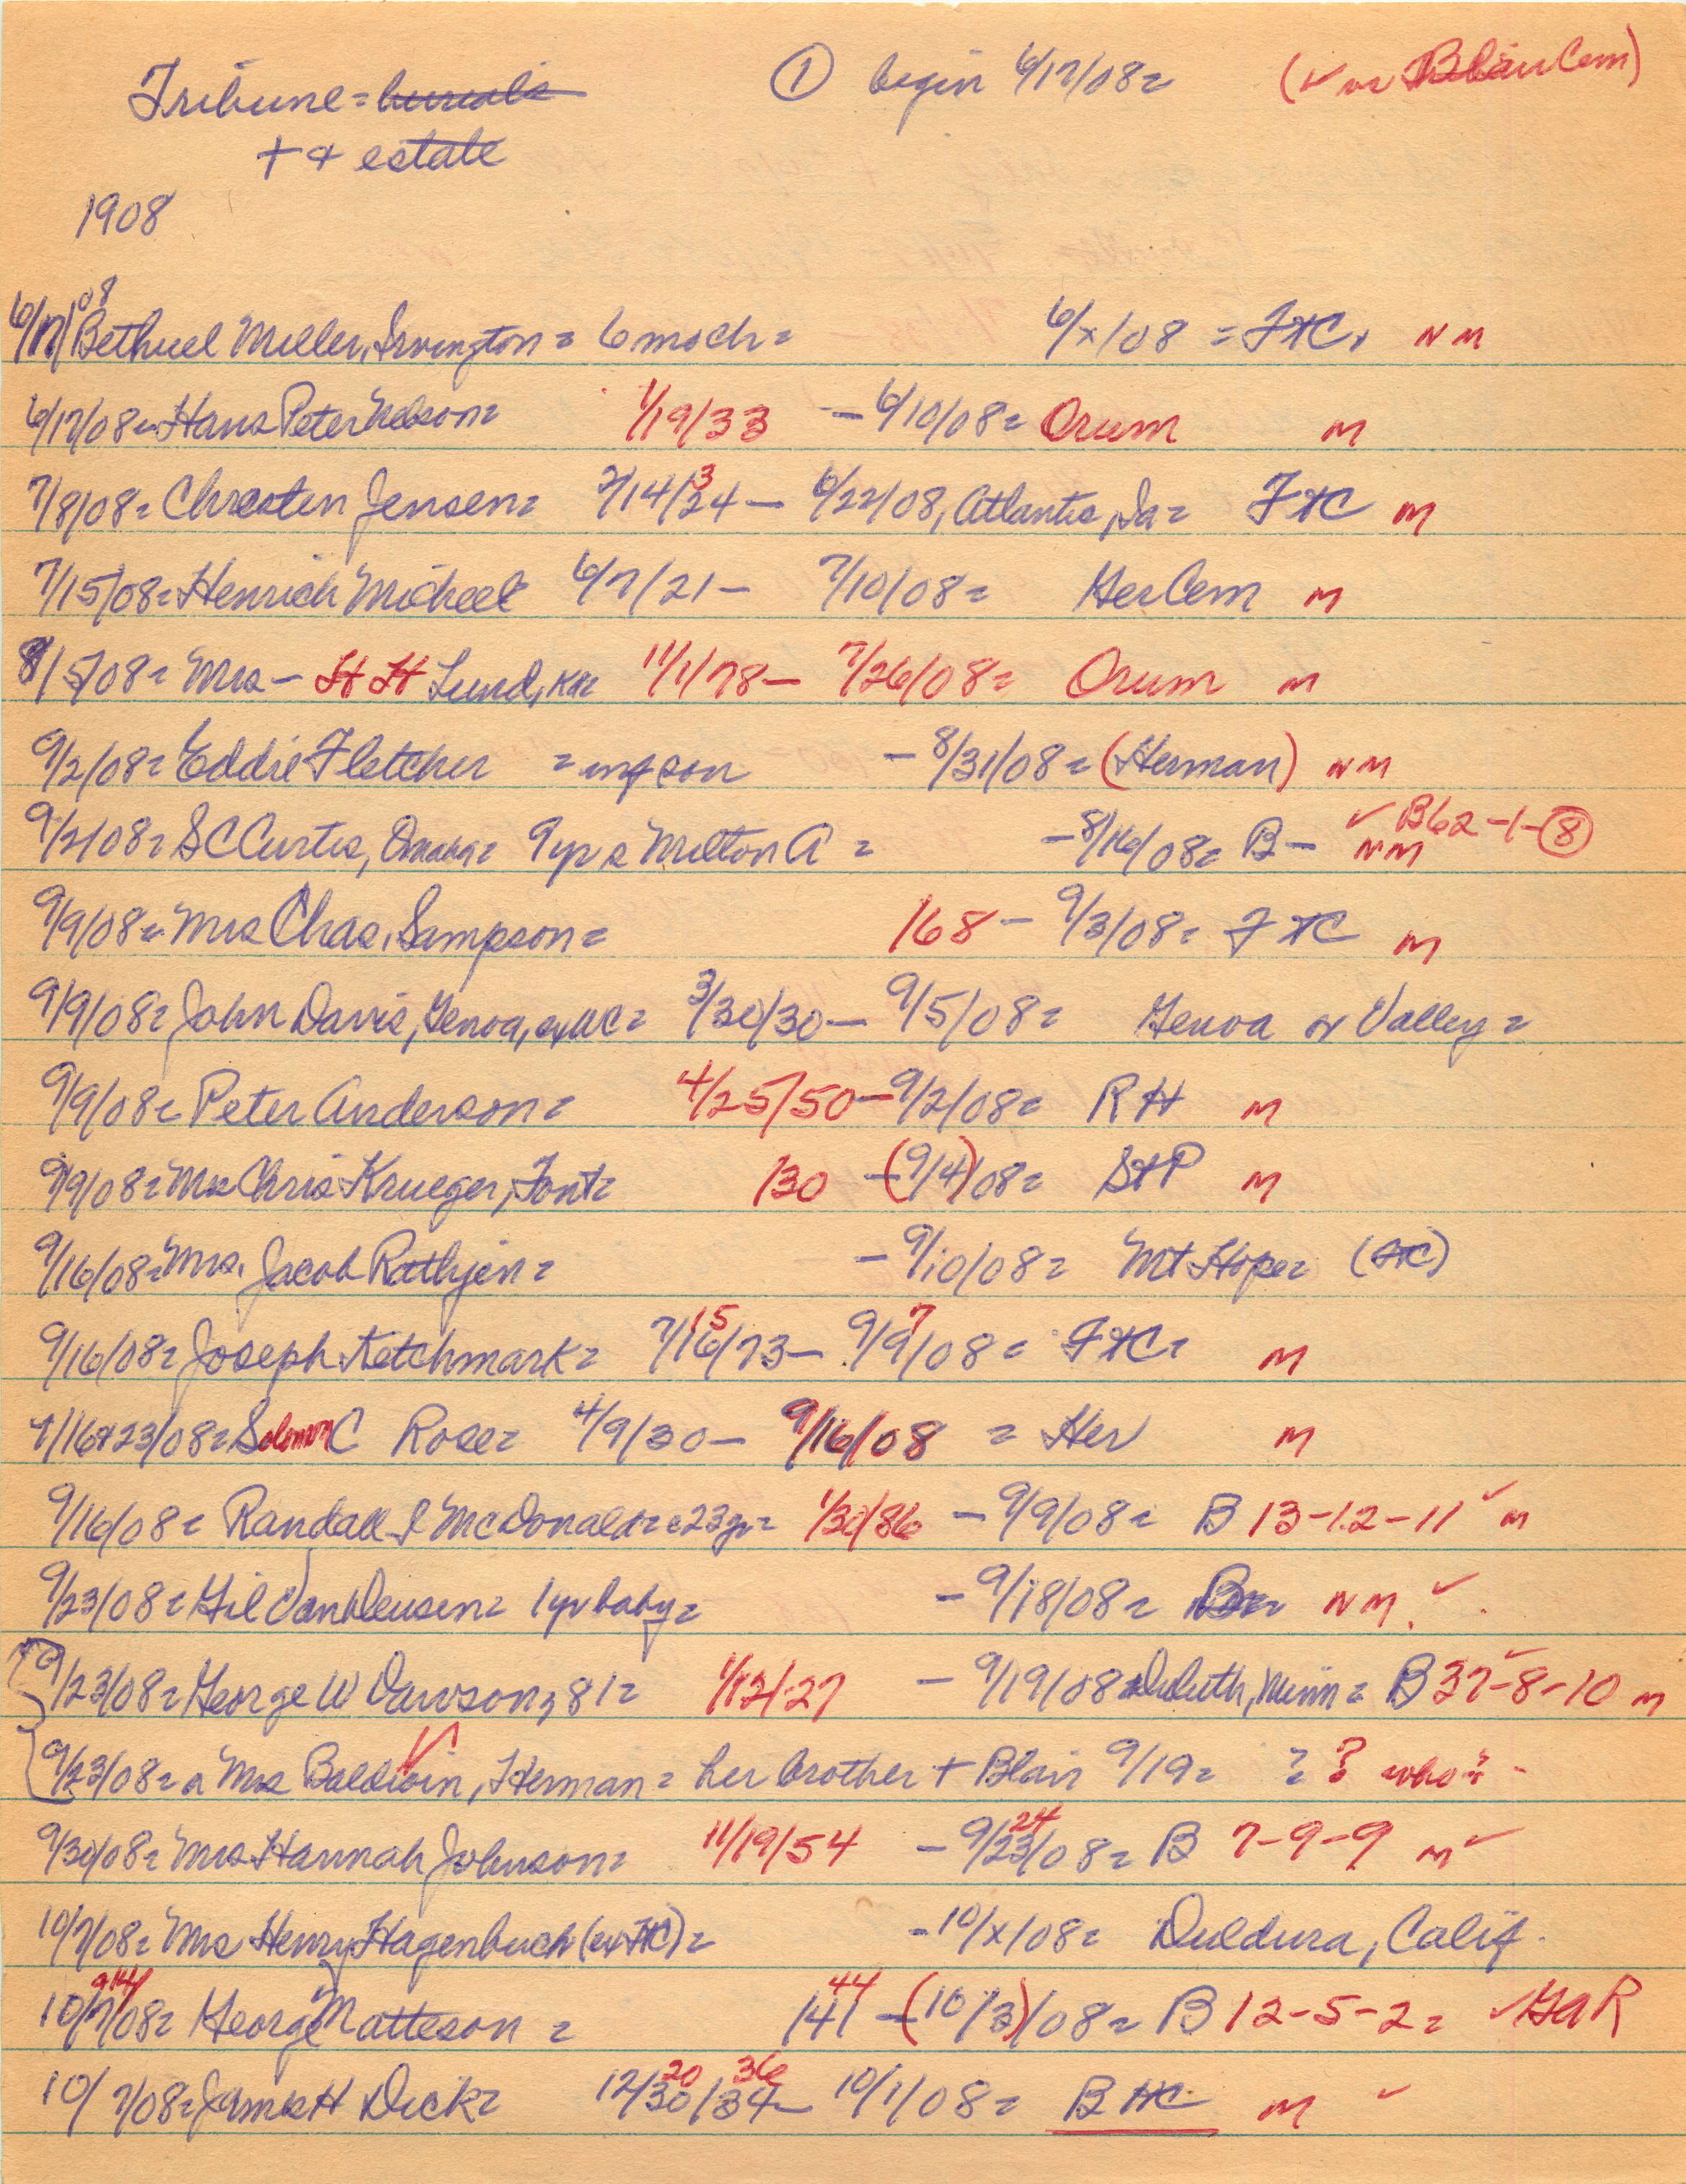 Tribune = burials ① begin 6/17/08 = (✓ or Blair Cem)
+ & estate
1908
6/17/08 Bethuel Miller, Irvington = 6 mo ch = 6/x/08 = FtC, NM
6/17/08 = Hans Peter Nelson = 1/19/33 - 6/10/08 = Orum M
7/8/08 = Chresten Jensen = 2/14/24 3 - 6/22/08, Atlantic, Ia = FtC M
7/15/08 = Henrich Micheel 6/7/21 - 7/10/08 = Her Cem M
8/5/08 = Mrs - H H Lund, 11/1/78 - 7/26/08 = Orum M
9/2/08 = Eddie Fletcher = inf son - 8/31/08 = (Herman) NM
9/2/08 = S C Curtis, Omaha = 9 yr s Milton A = - 8/16/08 = B - ✓ B62-1-⑧ NM
9/9/08 = Mrs Chas. Sampson = 168 - 9/3/08 = FtC M
9/9/08 = John Davis, Genoa, ex WC = 3/30/30 - 9/5/08 = Genoa or Valley =
9/9/08 = Peter Anderson = 4/25/50 - 9/2/08 = RH M
9/9/08 = Mrs Chris Krueger, Font = 130 - (9/4)/08 = StP M
9/16/08 = Mrs. Jacob Rathjen = - 9/10/08 = Mt Hope = (FtC)
9/16/08 = Joseph Ketchmark = 7/16 15/73 - 9/9 7/08 = FtC = M
9/16&23/08 = Solomon C Rose = 4/9/30 - 9/16/08 = Her M
9/16/08 = Randall I McDonald = c23 yr = 1/30/86 - 9/9/08 = B 13-12-11 ✓ M
9/23/08 = Gil VanDeusen = 1 yr baby = - 9/18/08 = B = NM. ✓
9/23/08 = George W Dawson, 81 = 1/12/27 - 9/19/08 Duluth, Minn = B 37-8-10 ✓ M
9/23/08 = a Mrs Baldwin, Herman = her brother + Blair 9/19 = ? ? who? -
9/30/08 = Mrs Hannah Johnson = 11/19/54 - 9/23 24/08 = B 7-9-9 M ✓
10/7/08 = Mrs Henry Hagenbuch (ex FtC) = - 10/x/08 = Duldura, Calif.
10/7 9 14/08 = George Matteson = 141 44 - (10/3)/08 = B 12-5-2 = ✓ GAR
10/7/08 = James H Dick = 12/30 20/34 36 - 10/1/08 = B FtC M ✓